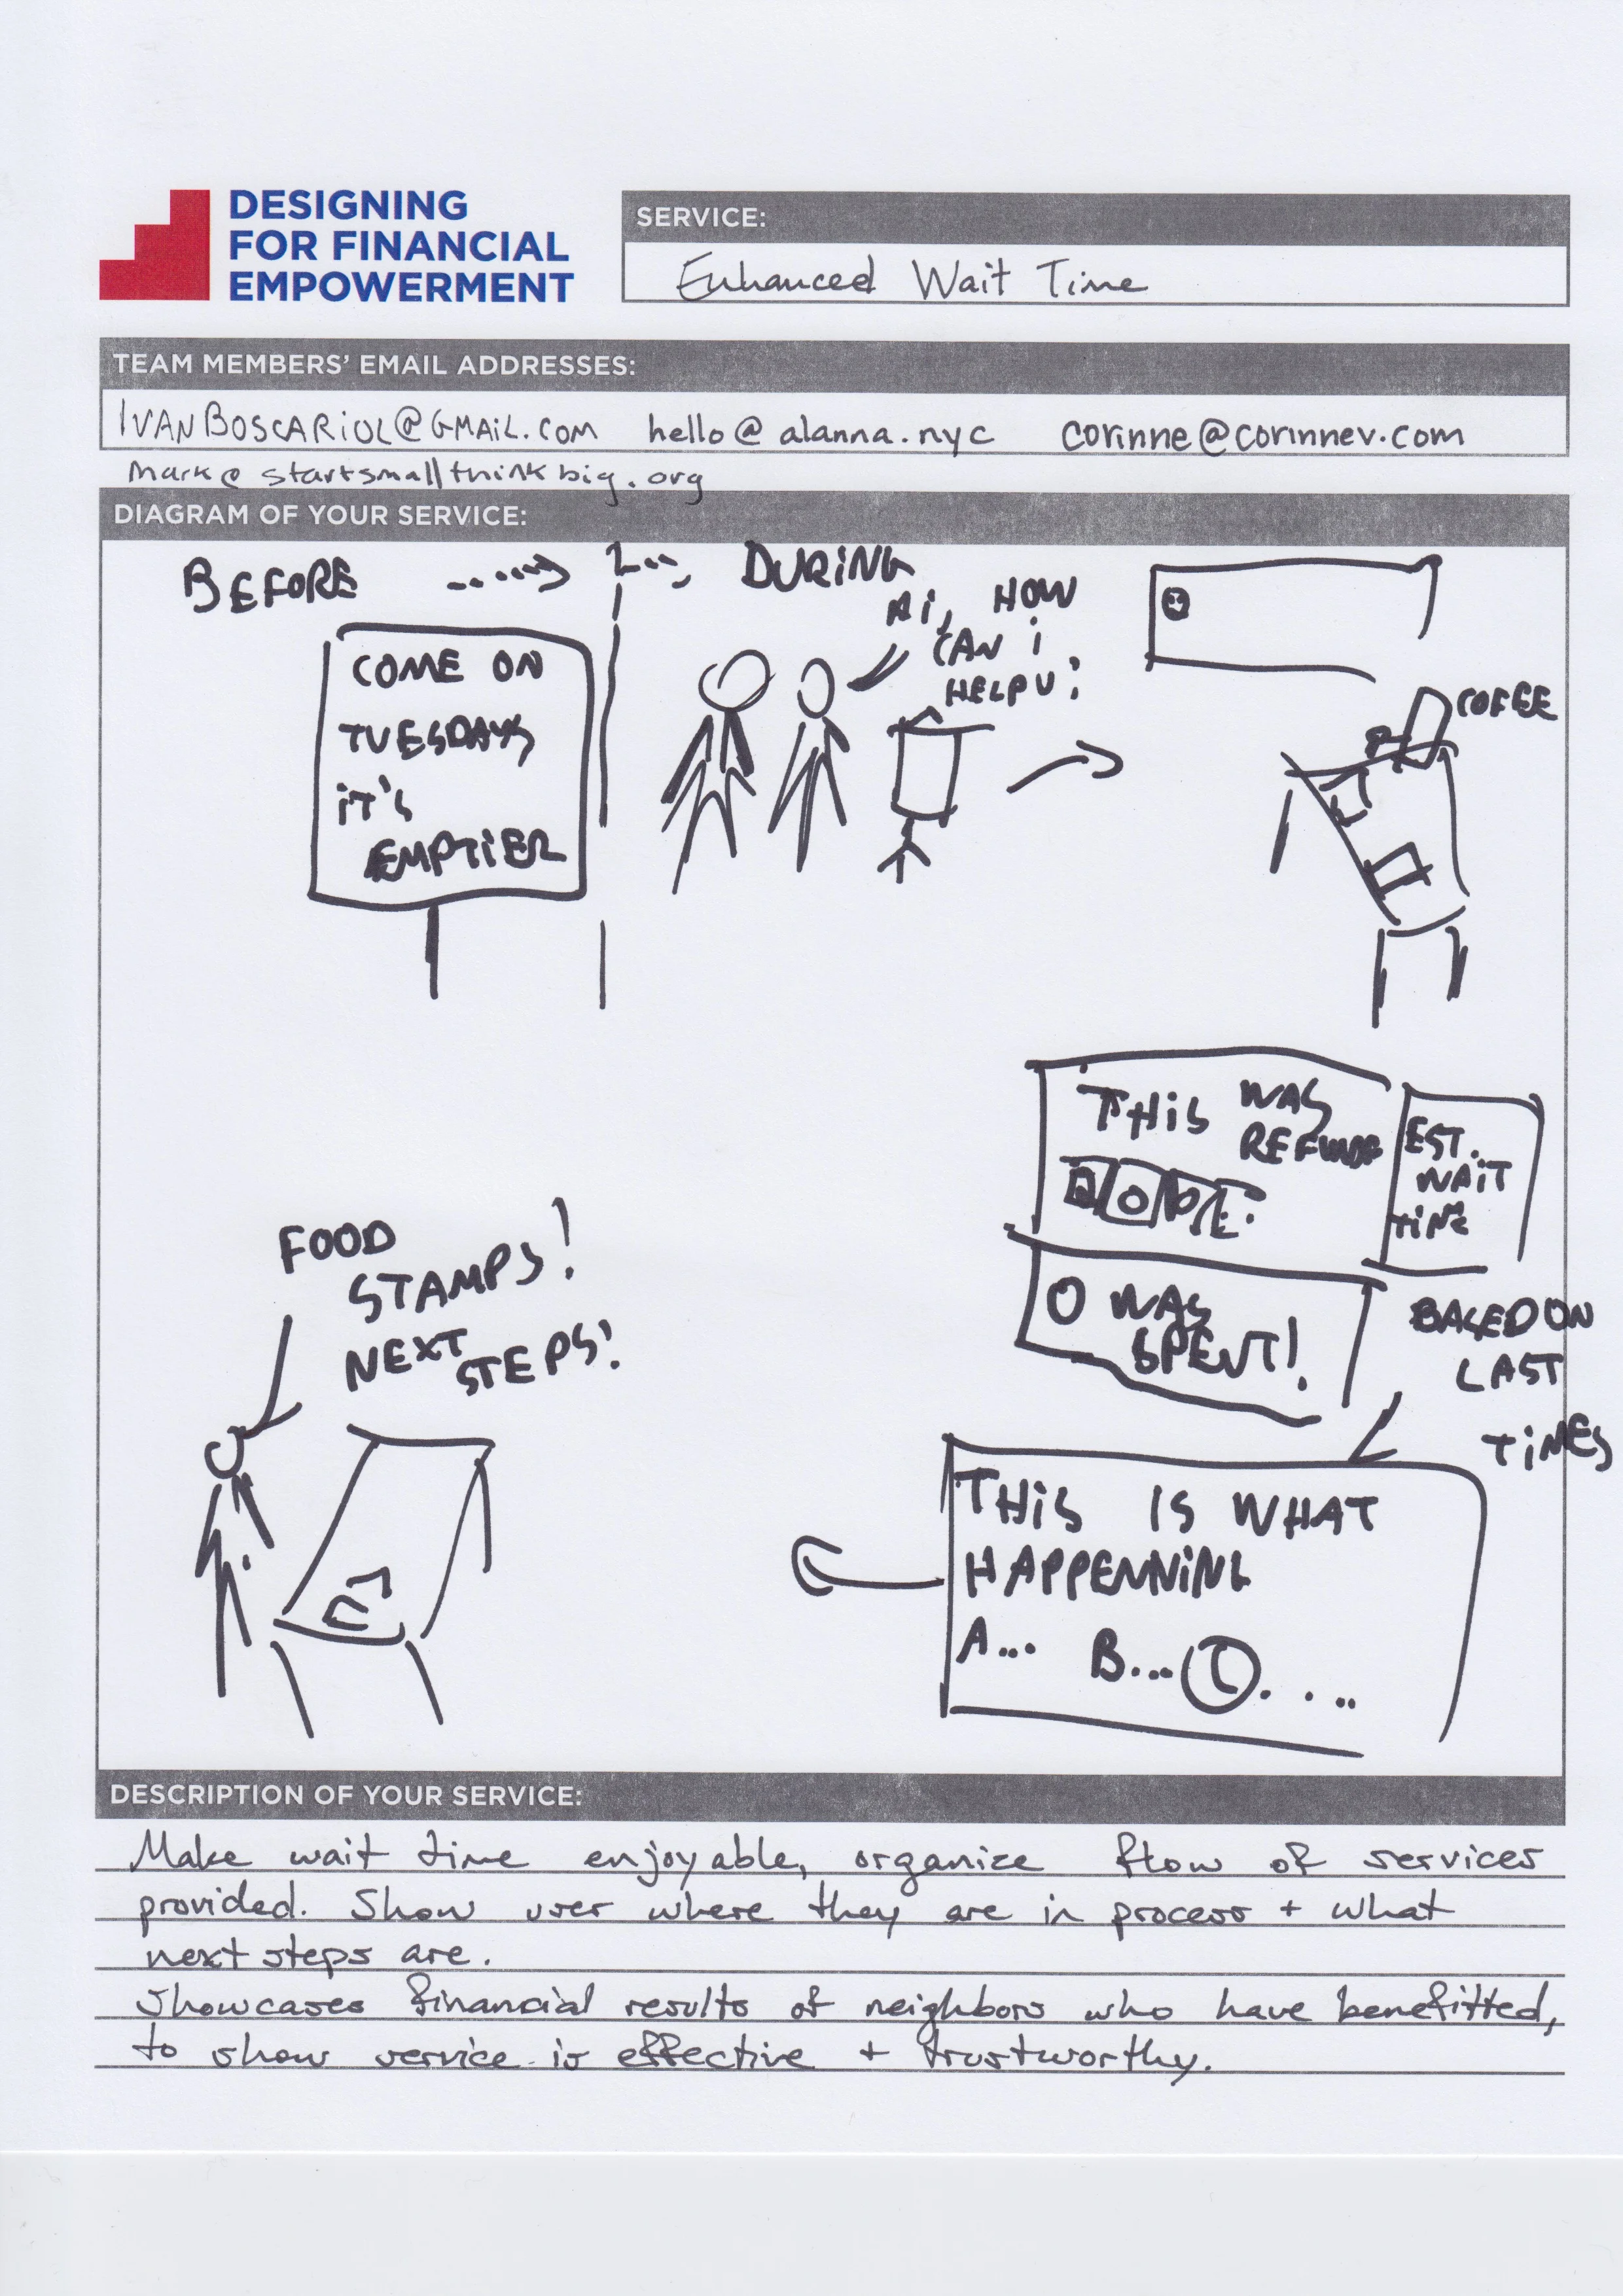 DESIGNING
FOR FINANCIAL
EMPOWERMENT
SERVICE:
Enhanced Wait Time
TEAM MEMBERS' EMAIL ADDRESSES:
IVANBOSCARiOL@GMAiL.COM hello@alanna.nyc corinne@corinnev.com
mark@startsmallthinkbig.org
DIAGRAM OF YOUR SERVICE:
BEFORE DURiNG
COME ON
TUESDAYS
iT'S
EMPTiER
Hi, HOW
CAN i
HELP U?
COFEE
THiS WAS
REFUNDED
EST.
WAiT
TiME
0 WAS
SPENT!
BASED ON
LAST
TiMES
THiS IS WHAT
HAPPENNiNG
A... B... C....
FOOD
STAMPS!
NEXT
STEPS!
DESCRIPTION OF YOUR SERVICE:
Make wait time enjoyable, organize flow of services
provided. Show user where they are in process + what
next steps are.
Showcases financial results of neighbors who have benefitted,
to show service is effective + trustworthy.